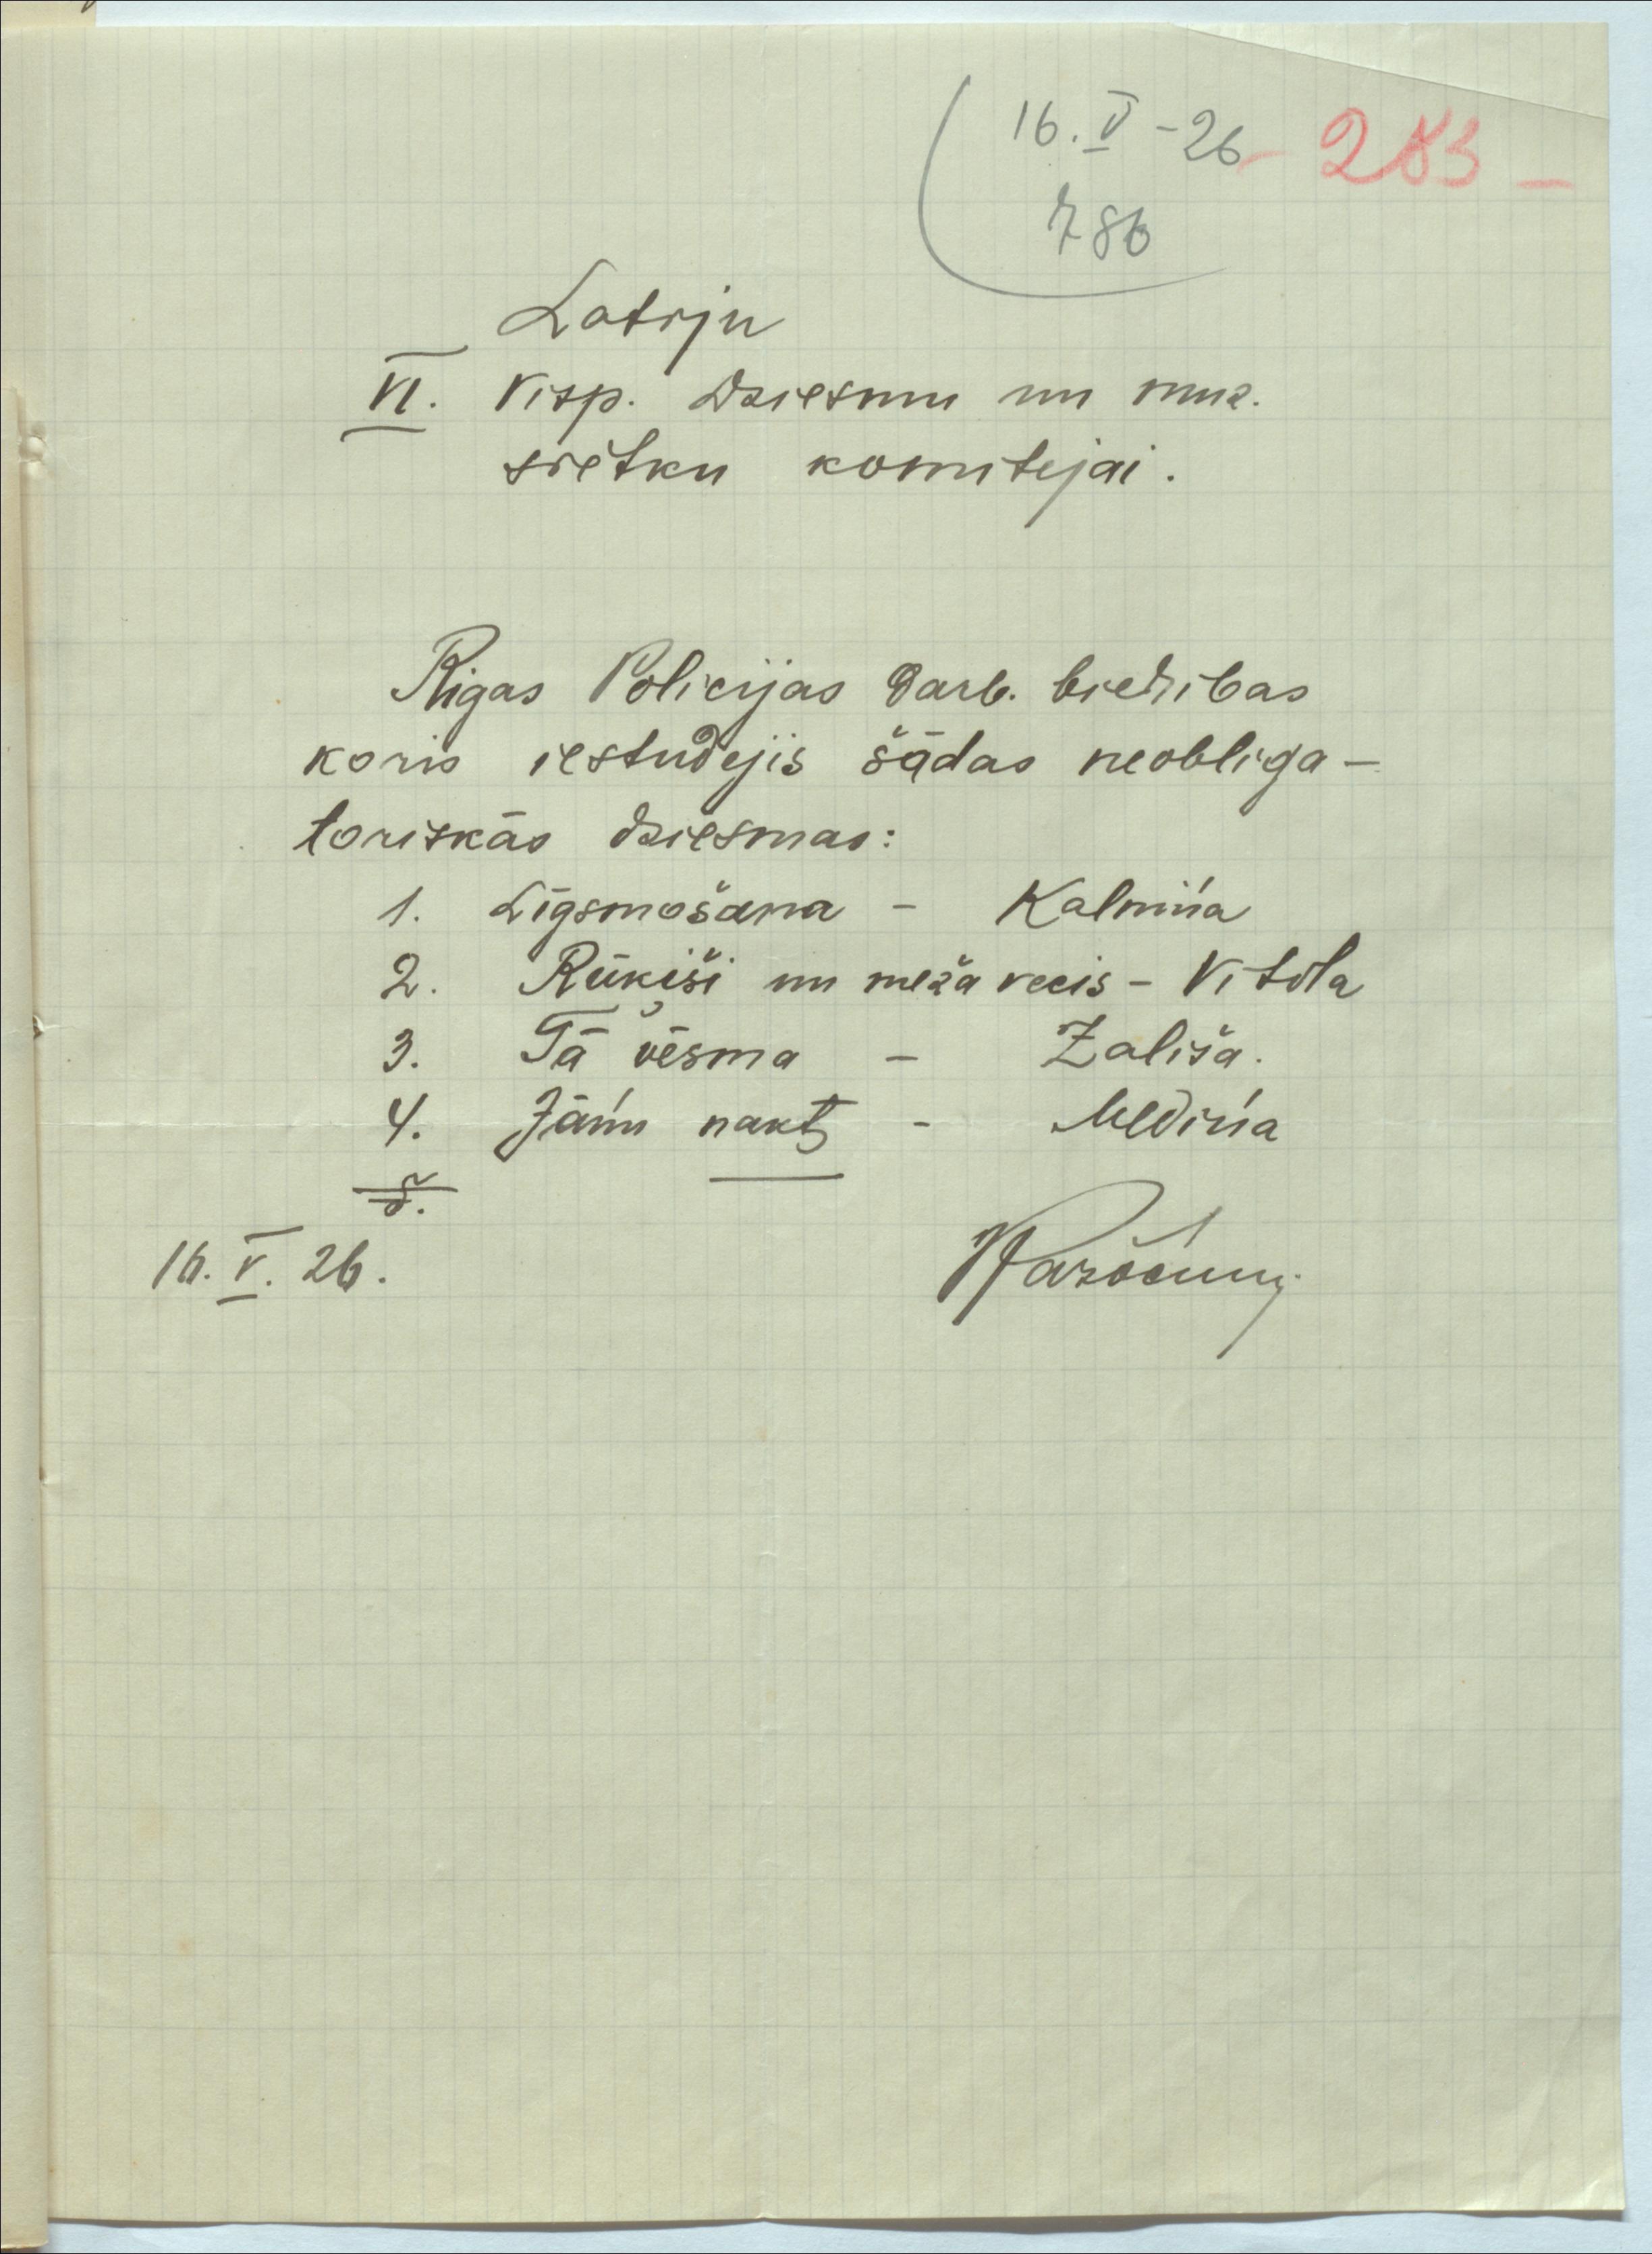 16. V - 26 - 283 -
786
Latvju
VI. Visp. Dziesmu un muz.
svētku komitejai.
Rīgas Policijas Darb. biedrības
koris iestudējis šādas neobliga-
toriskās dziesmas:
1. Līgsmošana - Kalniņa
2. Rūķiši un meža vecis - Vītola
3. Tā vēsma - Zališa.
4. Jāņu nakts - Mediņa
16. V. 26.